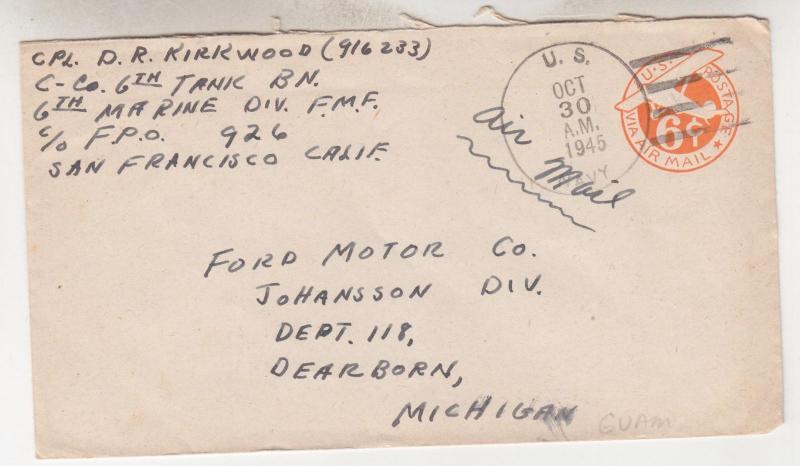 CPL. D. R. KIRKWOOD (916233)
C-Co. 6TH TANK BN.
6TH MARINE DIV. F.M.F.
c/o F.P.O. 926
SAN FRANCISCO CALIF.
U. S.
OCT
30
A.M.
1945
NAVY
Air Mail
U.S. POSTAGE
6¢
VIA AIR MAIL
FORD MOTOR Co.
JOHANSSON DIV.
DEPT. 118,
DEARBORN,
MICHIGAN
GUAM